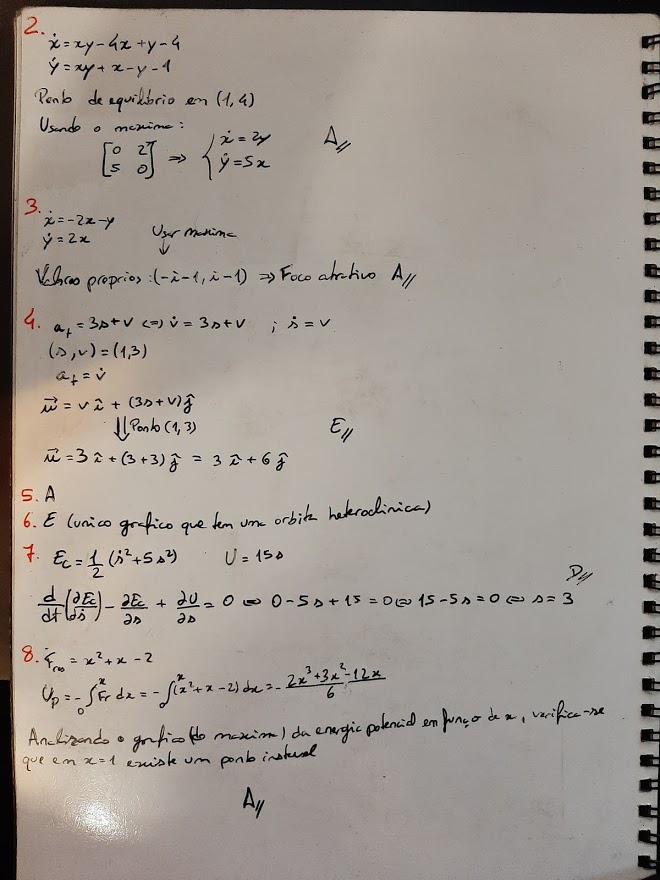 2.
ẋ = xy - 4x + y - 4
ẏ = xy + x - y - 1
Ponto de equilíbrio em (1,4)
Usando o maxima:
[0 2; 5 0] => { ẋ = 2y
ẏ = 5x A//
3.
ẋ = -2x - y
ẏ = 2x Usar maxima
↓
Valores proprios: (-i-1, i-1) => Foco atrativo A//
4. a_t = 3s+v <=> v̇ = 3s+v ; ṡ = v
(s,v) = (1,3)
a_t = v̇
u⃗ = v î + (3s+v) ĵ
⇓ Ponto (1,3) E//
u⃗ = 3 î + (3+3) ĵ = 3 î + 6 ĵ
5. A
6. E (unico grafico que tem uma orbita heteroclinica)
7. Ec = 1/2 (ṡ² + 5s²) U = 15s
D//
d/dt (∂Ec/∂ṡ) - ∂Ec/∂s + ∂U/∂s = 0 <=> 0 - 5s + 15 = 0 <=> 15 - 5s = 0 <=> s = 3
8. F_res = x² + x - 2
Up = -∫₀ˣ Fr dx = -∫ˣ (x² + x - 2) dx = - (2x³ + 3x² - 12x)/6
Analizando o grafico (do maxima) da energia potencial em funçao de x, verifica-se
que em x=1 existe um ponto instavel
A//